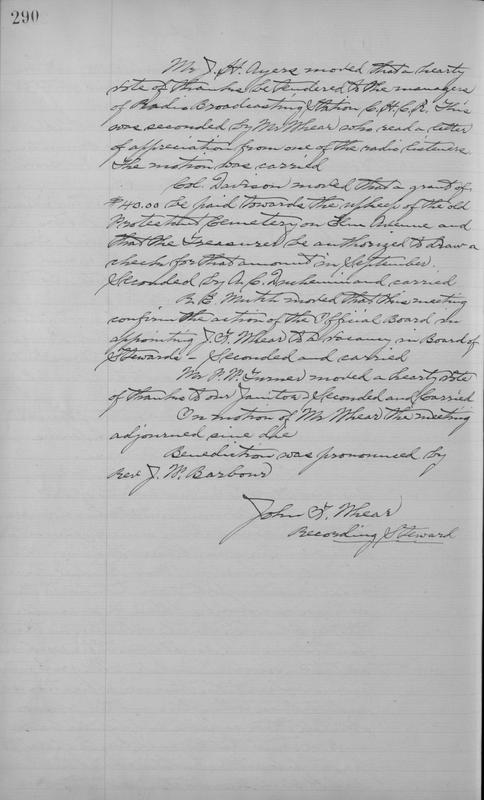 290
Mr J. H. Ayers moved that a hearty
vote of thanks be tendered to the managers
of Radio Broadcasting Station C.H.C.K. This
was seconded by Mr Whear who read a letter
of appreciation from one of the radio listeners.
The motion was carried
Col. Davison moved that a grant of
$40.00 be paid towards the upkeep of the old
Protestant Cemetery on Elm Avenue and
that the Treasurer be authorized to draw a
check for that amount in September.
Seconded by A. C. Duchemin and carried
R. E. Mutch moved that this meeting
confirm the action of the Official Board in
appointing J. F. Whear to a vacancy in Board of
Stewards - Seconded and carried
Mr P. W. Turner moved a hearty vote
of thanks to our Janitor Seconded and Carried
On motion of Mr Whear the meeting
adjourned sine die
Benediction was pronounced by
Rev J. W. Barbour
John F. Whear
Recording Steward